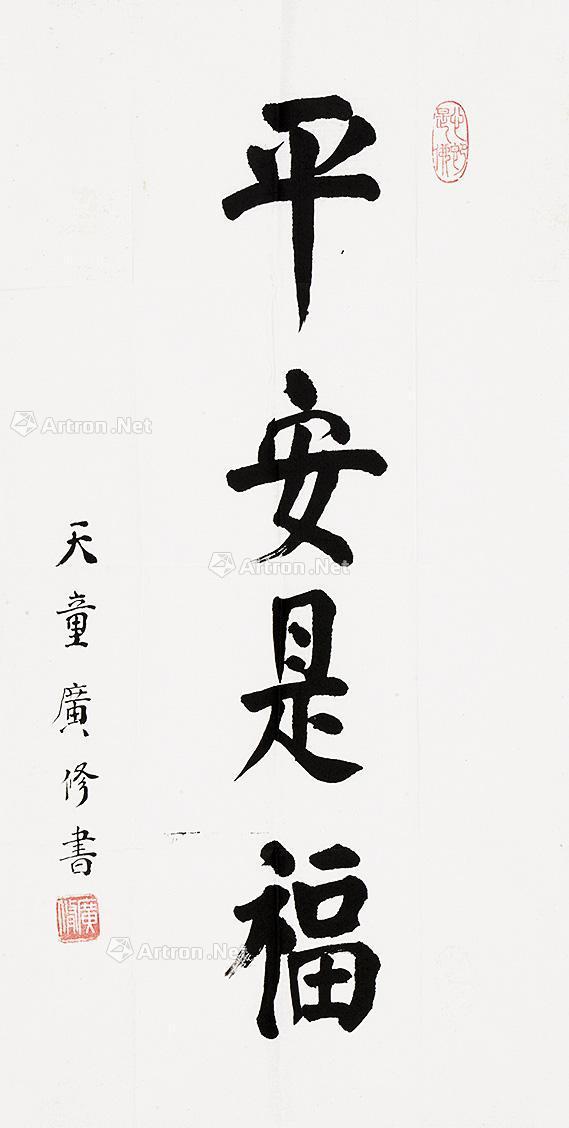 平安是福
天童廣修書
心即是佛
廣修
Artron.Net
Artron.Net
Artron.Net